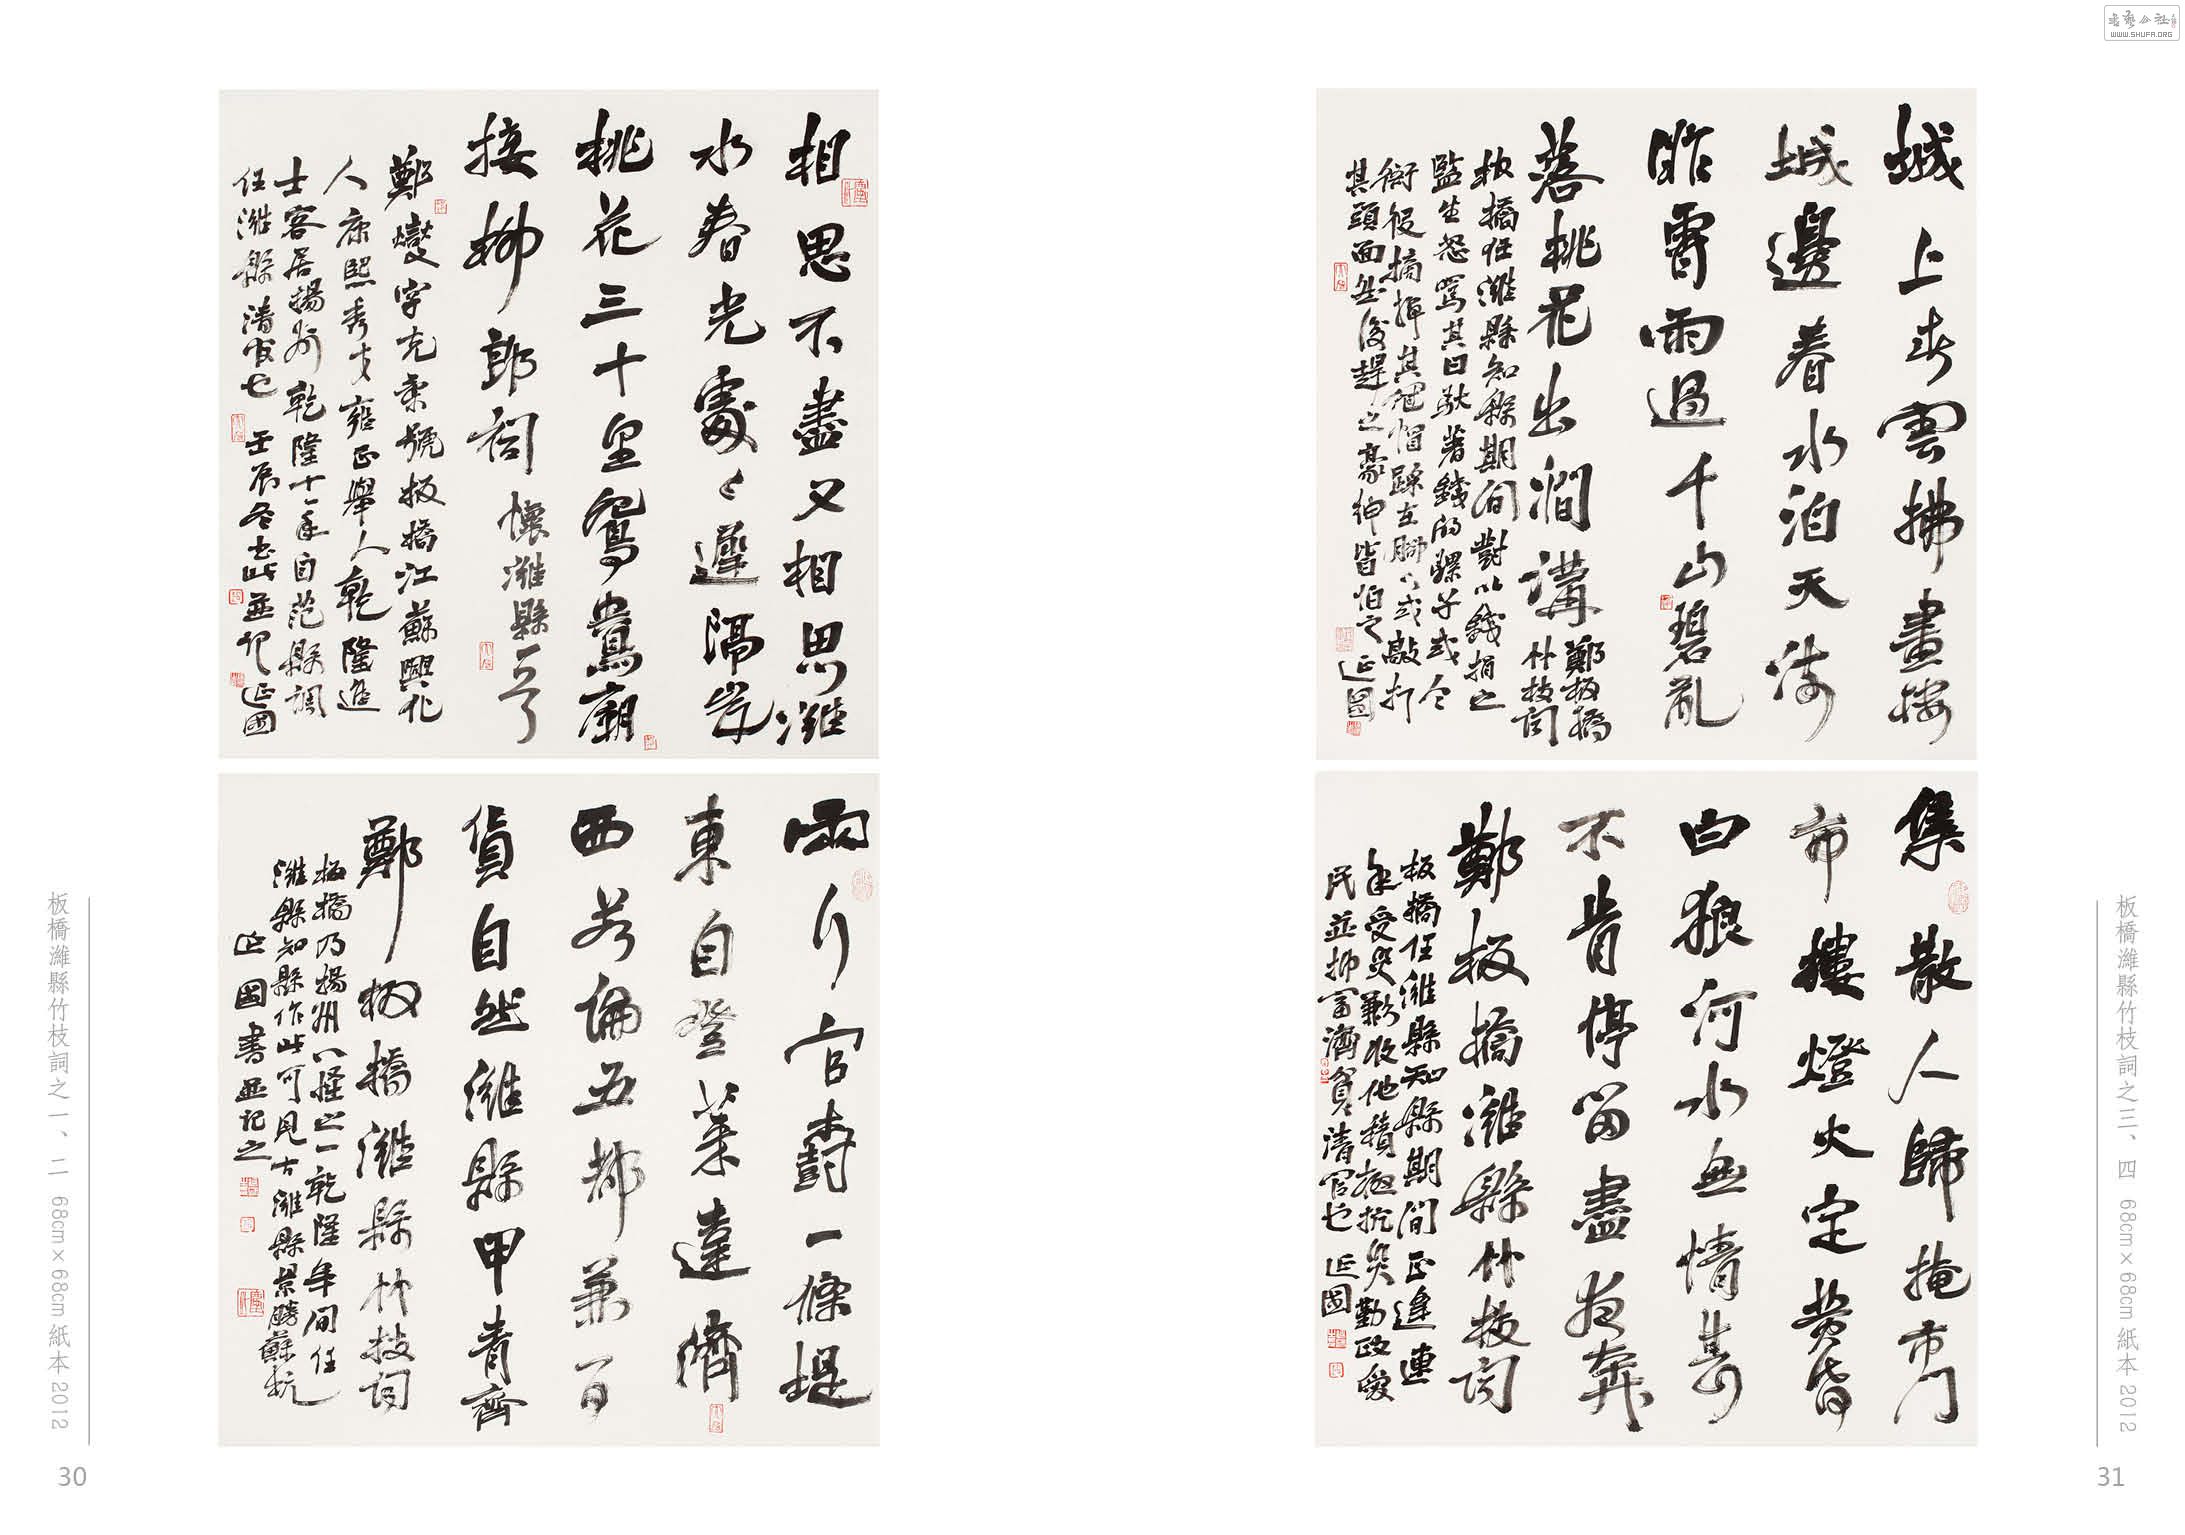 相思不盡又相思濰
水春光處〻遲隔岸
桃花三十里鴛鴦廟
接柳郎祠
懷濰縣一首
鄭燮字克柔號板橋江蘇興化
人康熙秀才雍正舉人乾隆進
士客居揚州乾隆十一年自范縣調
任濰縣清官也 壬辰冬書此並記 延國
兩行官樹一條堤
東自登萊達濟
西若論五都兼百
貨自然濰縣甲青齊
鄭板橋濰縣竹枝詞
板橋乃揚州八怪之一乾隆年間任
濰縣知縣作此可見古濰縣景勝蘇杭
延國書並記之
板橋濰縣竹枝詞之一、二 68cm×68cm 紙本 2012
30
書藝公社
WWW.SHUFA.ORG
城上春雲拂畫樓
城邊春水泊天流
昨宵雨過千山碧亂
落桃花出澗溝
鄭板橋
竹枝詞
板橋任濰縣知縣期間對以錢捐之
監生怒罵其曰馱著錢的騾子或令
衙役摘掉其冠帽踩在腳下或敲打
其頭面然後趕之豪紳皆怕之 延國
集散人歸掩市門
市樓燈火定黃昏
白狼河水無情甚
不肯停留盡夜奔
鄭板橋濰縣竹枝詞
板橋任濰縣知縣期間正逢連
年受災歉收他積極抗災勤政愛
民並抑富濟貧清官也 延國
板橋濰縣竹枝詞之三、四 68cm×68cm 紙本 2012
31